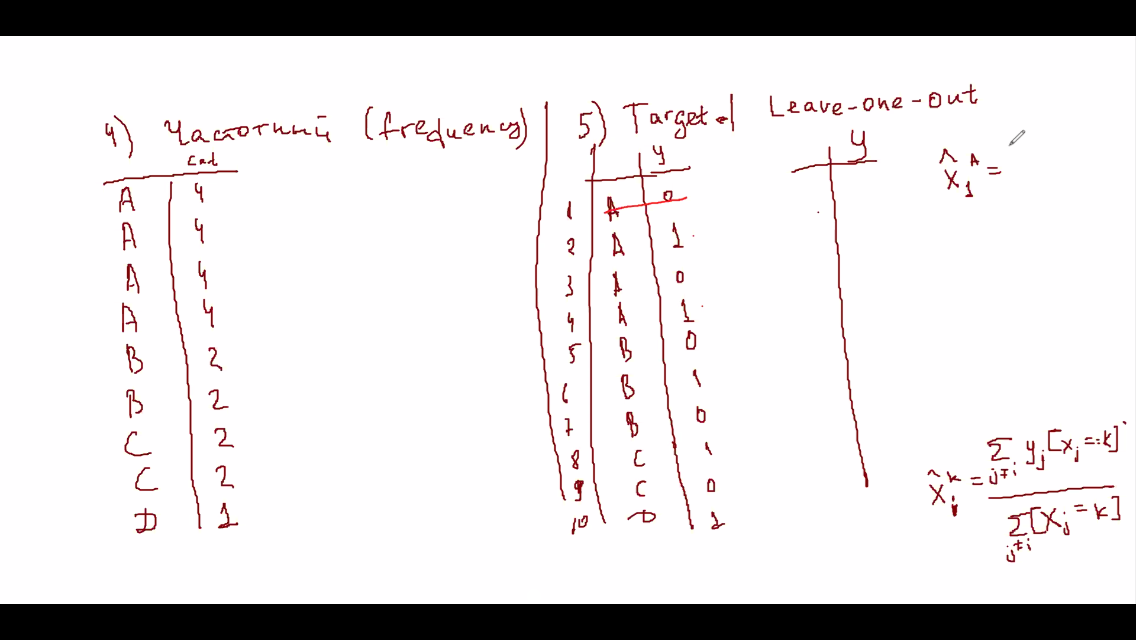 4) Частотный (frequency)
cnt
A 4
A 4
A 4
A 4
B 2
B 2
C 2
C 2
D 1
5) Target Leave-one-out
y
1 A 0
2 A 1
3 A 0
4 A 1
5 B 0
6 B 1
7 B 0
8 C 1
9 C 0
10 D 1
y
X̂₁ᴬ =
X̂ᵢᵏ = Σ_{j≠i} yⱼ[xⱼ = k]
Σ_{j≠i} [xⱼ = k]